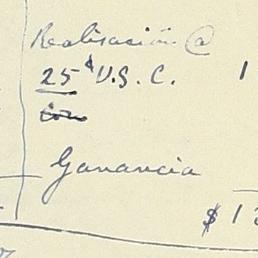 Realisación @
25 $ U.S.C. 1
Ganancia
$ 1